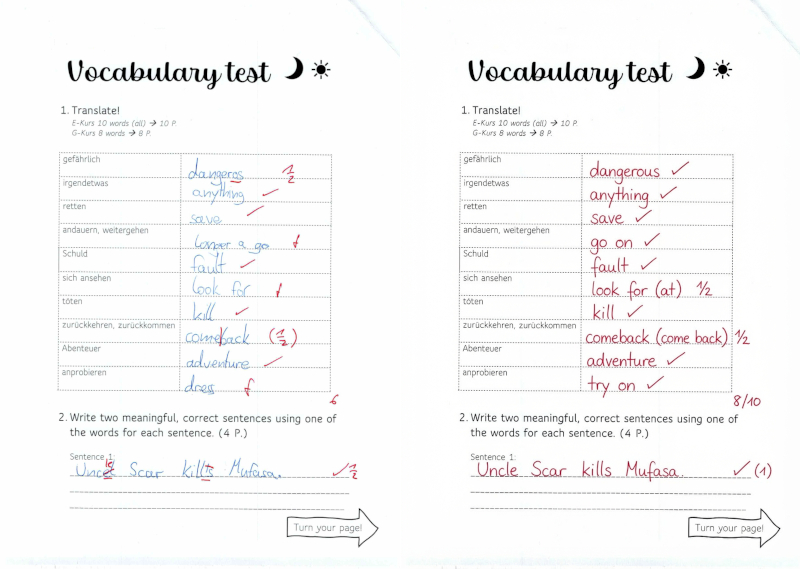 Vocabulary test
1. Translate!
E-Kurs 10 words (all) → 10 P.
G-Kurs 8 words → 8 P.
gefährlich dangeros 1/2
irgendetwas anything ✓
retten save ✓
andauern, weitergehen longer a go f
Schuld fault ✓
sich ansehen look for f
töten kill ✓
zurückkehren, zurückkommen comeback (1/2)
Abenteuer adventure ✓
anprobieren dress f
6
2. Write two meaningful, correct sentences using one of
the words for each sentence. (4 P.)
Sentence 1:
Scar kills Mufasa. ✓ 1/2
Turn your page!
Vocabulary test
1. Translate!
E-Kurs 10 words (all) → 10 P.
G-Kurs 8 words → 8 P.
gefährlich dangerous ✓
irgendetwas anything ✓
retten save ✓
andauern, weitergehen go on ✓
Schuld fault ✓
sich ansehen look for (at) 1/2
töten kill ✓
zurückkehren, zurückkommen comeback (come back) 1/2
Abenteuer adventure ✓
anprobieren try on ✓
8/10
2. Write two meaningful, correct sentences using one of
the words for each sentence. (4 P.)
Sentence 1:
Uncle Scar kills Mufasa. ✓ (1)
Turn your page!